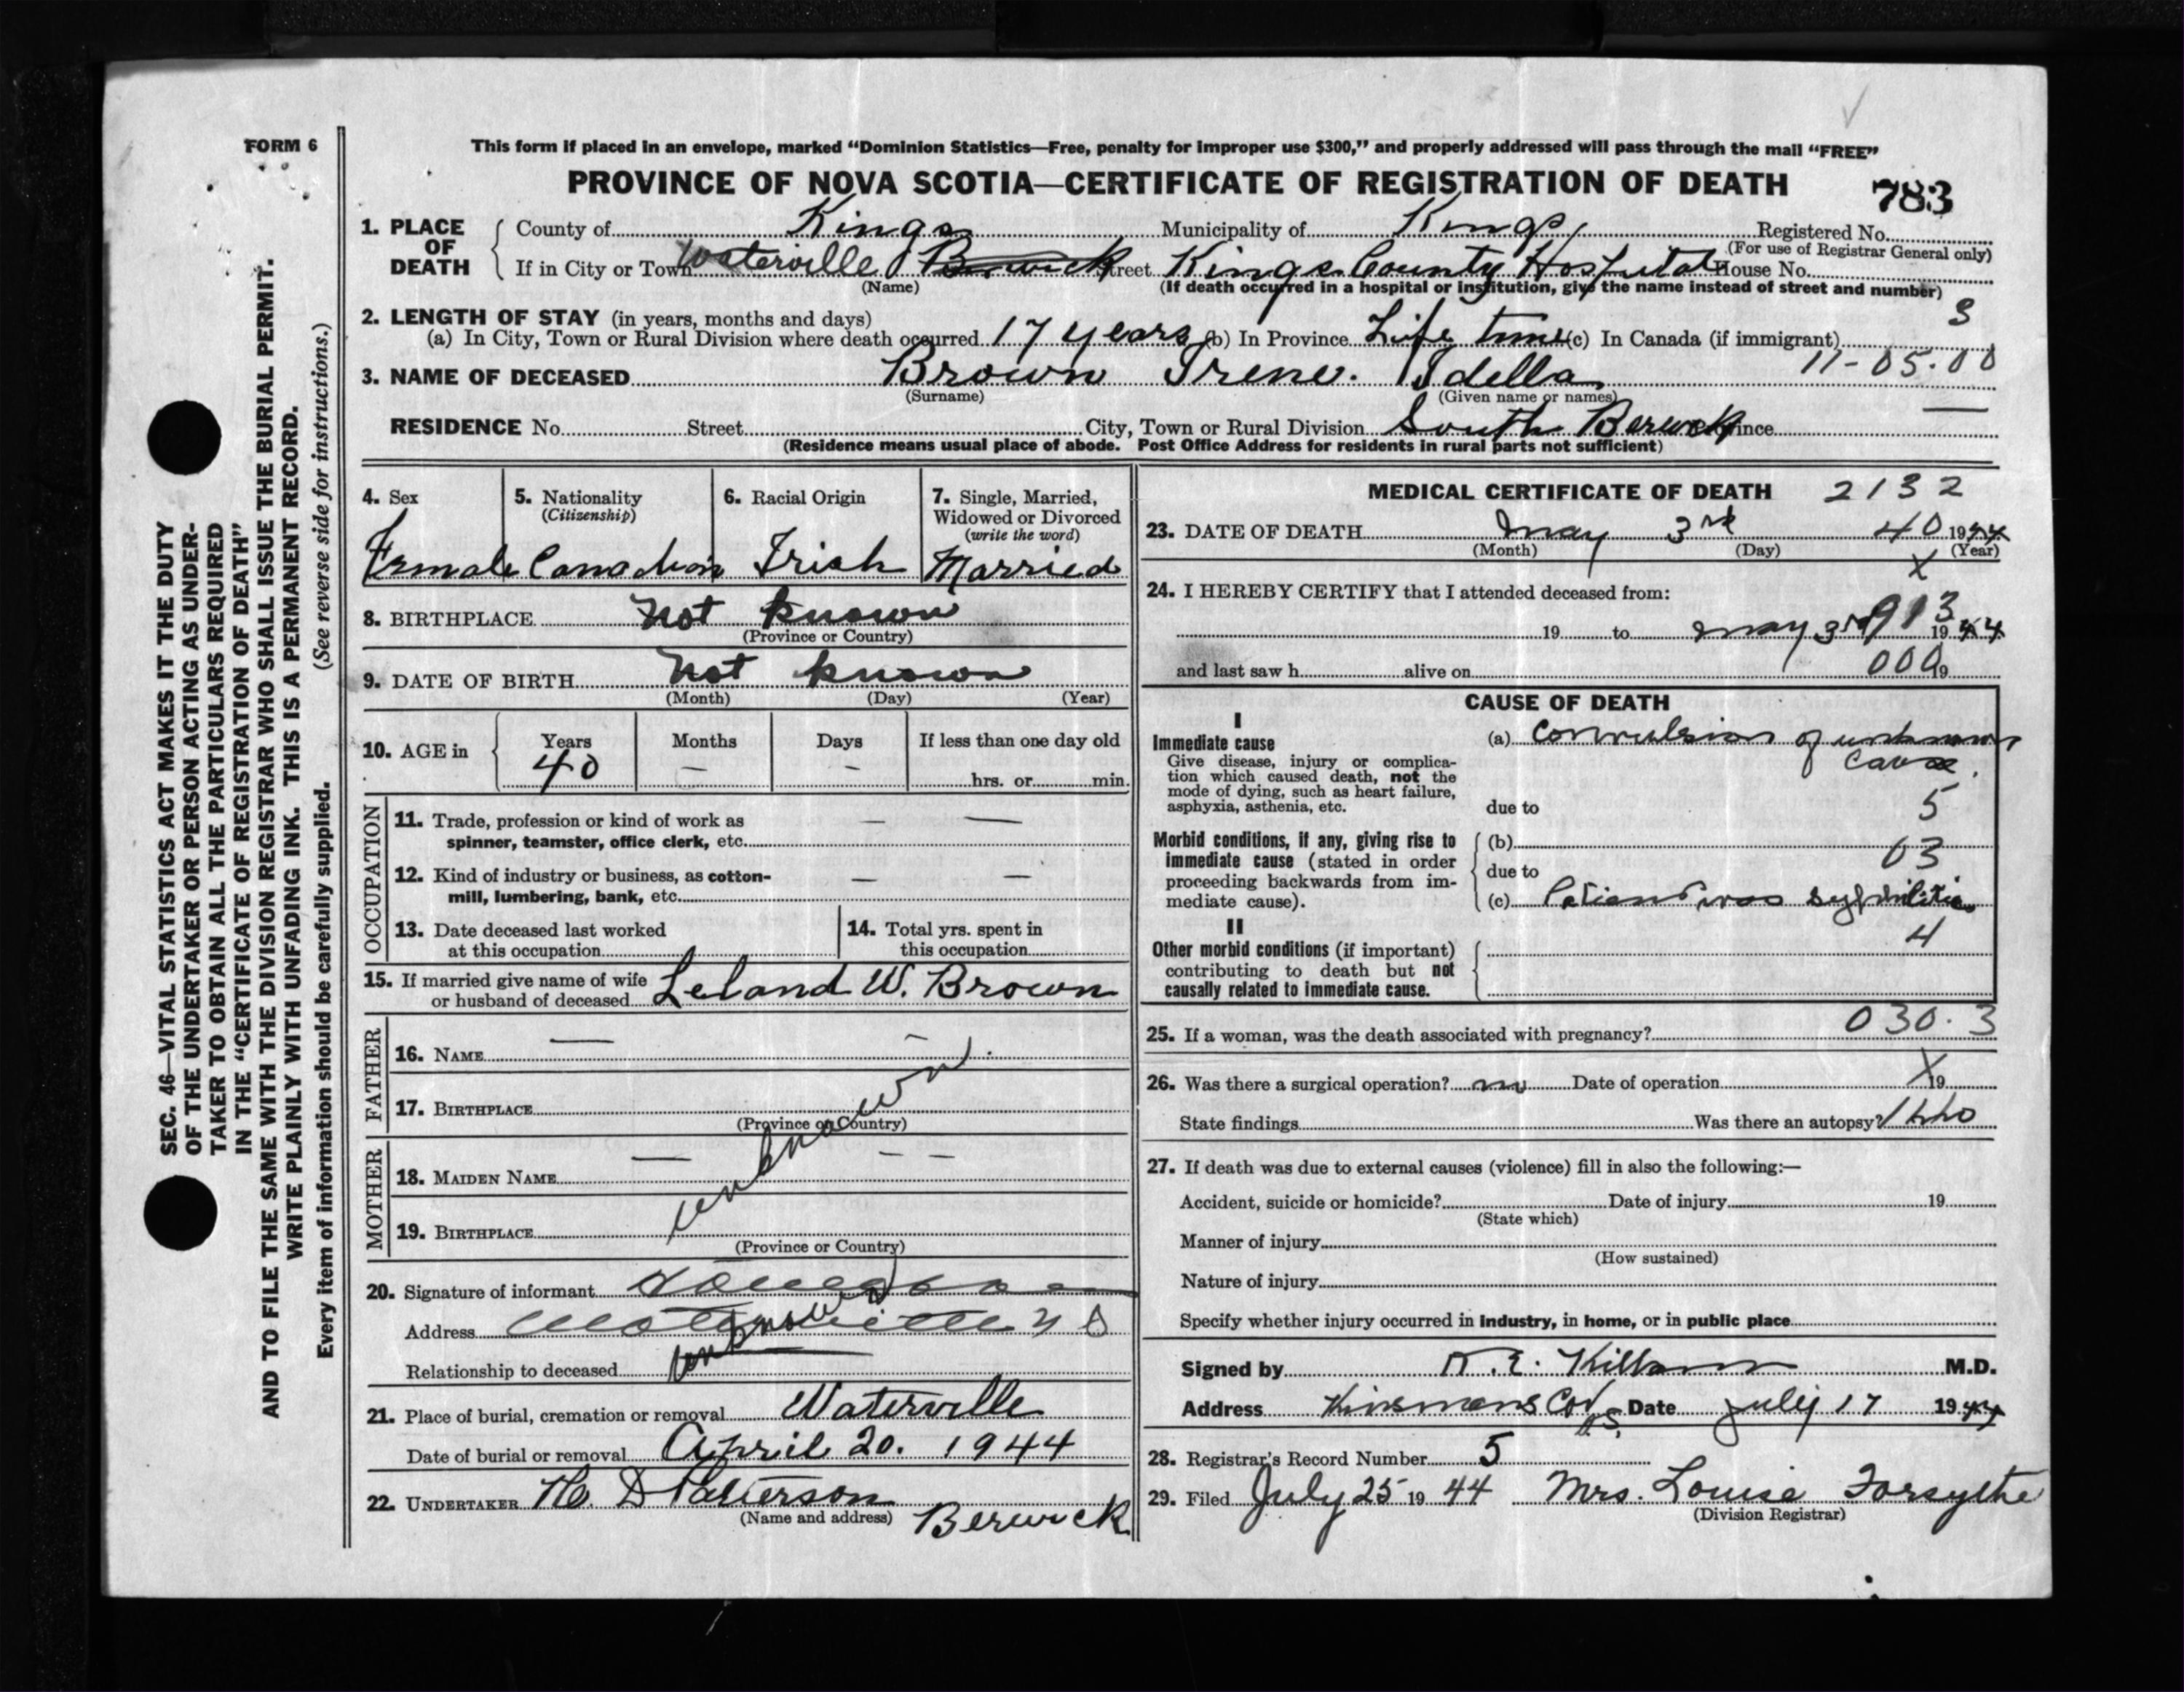 FORM 6
This form if placed in an envelope, marked “Dominion Statistics—Free, penalty for improper use $300,” and properly addressed will pass through the mail “FREE”
PROVINCE OF NOVA SCOTIA—CERTIFICATE OF REGISTRATION OF DEATH 783
1. PLACE OF DEATH
County of Kings Municipality of Kings Registered No.
(For use of Registrar General only)
If in City or Town Waterville Berwick Street Kings County Hospital House No.
(Name) (If death occurred in a hospital or institution, give the name instead of street and number)
3
2. LENGTH OF STAY (in years, months and days)
(a) In City, Town or Rural Division where death occurred 17 years (b) In Province Life time (c) In Canada (if immigrant)
11-05.00
3. NAME OF DECEASED Brown Irene. Idella
(Surname) (Given name or names)
RESIDENCE No. Street City, Town or Rural Division South Berwick Province —
(Residence means usual place of abode. Post Office Address for residents in rural parts not sufficient)
4. Sex
Female
5. Nationality
(Citizenship)
Canadian
6. Racial Origin
Irish
7. Single, Married,
Widowed or Divorced
(write the word)
Married
8. BIRTHPLACE Not known
(Province or Country)
9. DATE OF BIRTH Not known
(Month) (Day) (Year)
10. AGE in Years Months Days If less than one day old
40 — — hrs. or min.
OCCUPATION
11. Trade, profession or kind of work as — —
spinner, teamster, office clerk, etc.
12. Kind of industry or business, as cotton- — —
mill, lumbering, bank, etc.
13. Date deceased last worked
at this occupation
14. Total yrs. spent in
this occupation
15. If married give name of wife
or husband of deceased Leland W. Brown
FATHER
16. NAME — —
17. BIRTHPLACE
(Province or Country)
unknown
MOTHER
18. MAIDEN NAME — — —
19. BIRTHPLACE
(Province or Country)
20. Signature of informant
Address Waterville N S
Relationship to deceased unknown
21. Place of burial, cremation or removal Waterville
Date of burial or removal April 20. 1944
22. UNDERTAKER H. D Patterson
(Name and address) Berwick
MEDICAL CERTIFICATE OF DEATH 2132
23. DATE OF DEATH May 3rd 40 1944
(Month) (Day) (Year)
X
24. I HEREBY CERTIFY that I attended deceased from:
913
19 to May 3rd 1944
000
and last saw h alive on 19
CAUSE OF DEATH
I
Immediate cause
Give disease, injury or complica-
tion which caused death, not the
mode of dying, such as heart failure,
asphyxia, asthenia, etc.
(a) Convulsion of unknown
cause.
due to 5
Morbid conditions, if any, giving rise to
immediate cause (stated in order
proceeding backwards from im-
mediate cause).
(b) 03
due to
(c) Patient was syphilitic
II 4
Other morbid conditions (if important)
contributing to death but not
causally related to immediate cause.
030.3
25. If a woman, was the death associated with pregnancy?
X
26. Was there a surgical operation? no Date of operation 19
State findings Was there an autopsy? no
27. If death was due to external causes (violence) fill in also the following:—
Accident, suicide or homicide? Date of injury 19
(State which)
Manner of injury
(How sustained)
Nature of injury
Specify whether injury occurred in industry, in home, or in public place
Signed by R. E. Killam M.D.
Address Kinsmans Cor N.S. Date July 17 1944
28. Registrar's Record Number 5
29. Filed July 25 1944 Mrs. Louise Forsythe
(Division Registrar)
SEC. 46—VITAL STATISTICS ACT MAKES IT THE DUTY
OF THE UNDERTAKER OR PERSON ACTING AS UNDER-
TAKER TO OBTAIN ALL THE PARTICULARS REQUIRED
IN THE “CERTIFICATE OF REGISTRATION OF DEATH”
AND TO FILE THE SAME WITH THE DIVISION REGISTRAR WHO SHALL ISSUE THE BURIAL PERMIT.
WRITE PLAINLY WITH UNFADING INK. THIS IS A PERMANENT RECORD.
Every item of information should be carefully supplied. (See reverse side for instructions.)